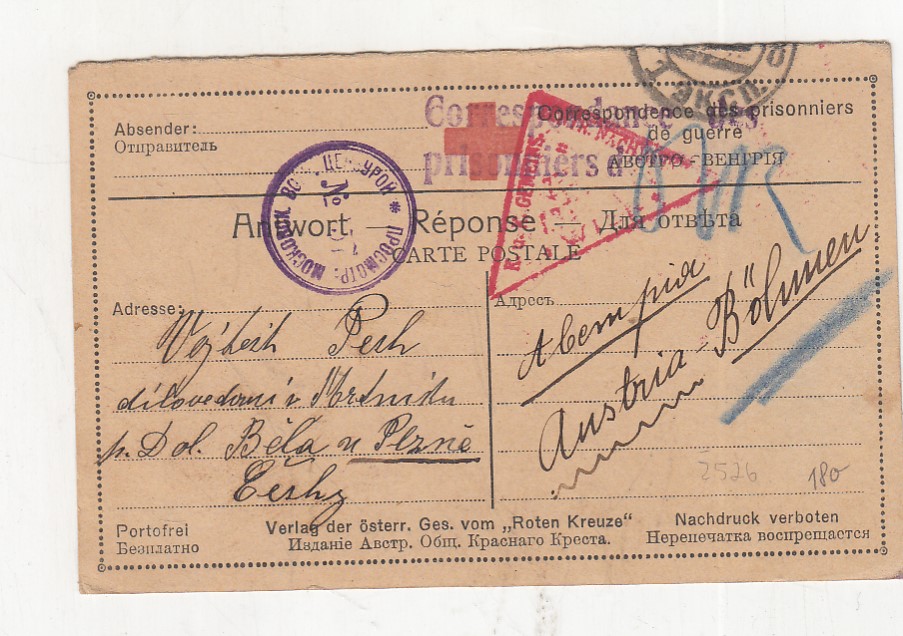 ЭКСП.
Correspondance des
prisonniers d
Absender:
Отправитель
Correspondence des prisonniers
de guerre
АВСТРО-ВЕНГРІЯ
ПРОСМОТР. МОСКОВСК. ВО ЦЕНЗУРОЙ
№
Antwort — Réponse — Для отвѣта
CARTE POSTALE
Adresse:
Адресъ
Vojtech Pech
dílovedoucí v Mrtníku
p. Dol. Běla u Plzně
Čechy
Австрия
Austria - Böhmen
2526
180
Portofrei
Безплатно
Verlag der österr. Ges. vom „Roten Kreuze“
Изданіе Австр. Общ. Краснаго Креста.
Nachdruck verboten
Нерепечатка воспрещается